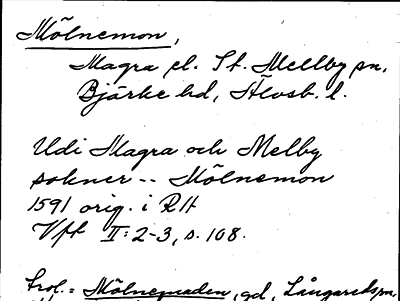 Mölnemon,
Magra el. St. Mellby sn,
Bjärke hd, Älvsb. l.
Udi Magra och Melby
sokner -- Mölnemon
1591 orig. i RA
Vft II: 2-3, s. 108.
Trol. = Mölnemaden, gd, Långareds sn,